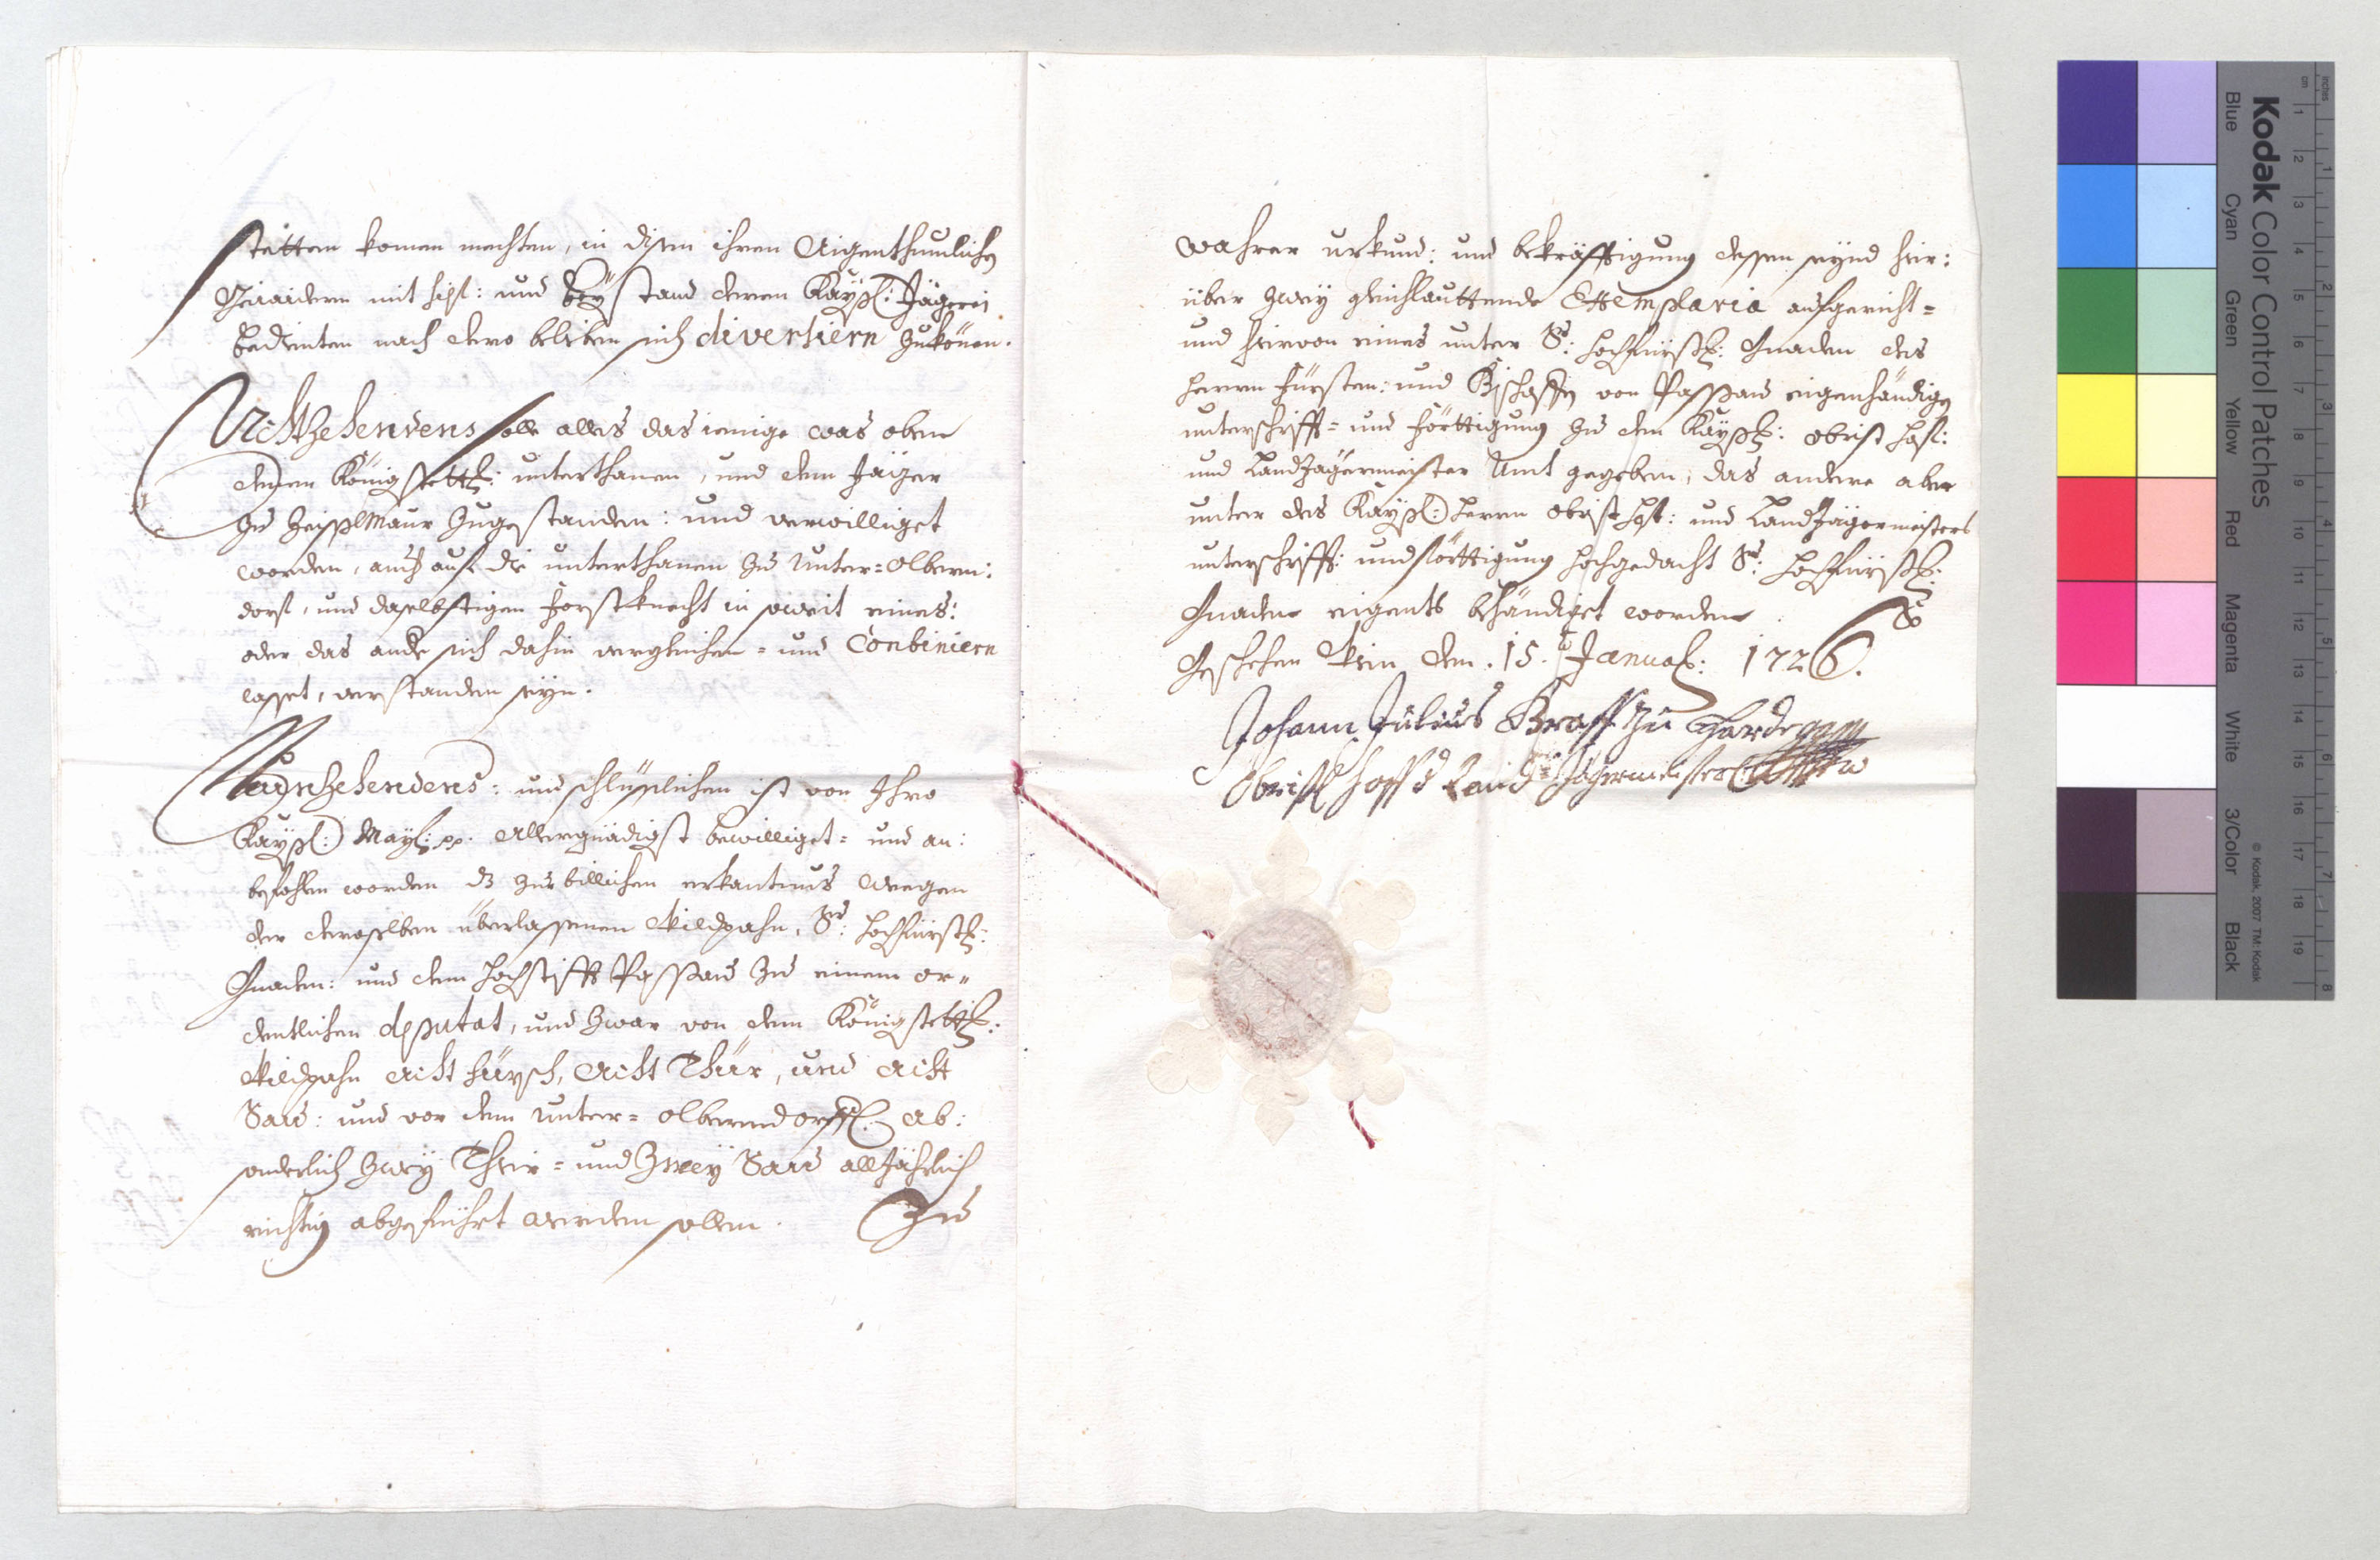 stetten komen mechten, in disen ihren Aigenthumlichen
Geiaidern mit hilf: und beystand deren Kayßl: Jägerei
bedienten nach dero belieben sich divertiern zukönen.
Achtzehendens solle alles das ienige was oben
denen Königstettl: unterthanen, und dem Jäger
zu Zeißlmaur zugestanden: und verwilliget
worden, auch auf die unterthanen zu Unter=Olbern:
dorf, und daselbstigen Forstknecht in soweit eines:
oder das ande sich dahin vergleichen= und Conbiniern
lasset, verstanden seyn.
Neünzehendens: und schlüsslichen ist von Ihro
Kayßl: Mayl: pp. Allergnädigst bewilliget= und an:
befohlen worden dz zur billichen erkantnus wegen
der deroselben überlassenen Wildpahn, Sr: Hochfürstl:
Gnaden: und dem Hochstifft Passau zu einem or=
dentlichen deputat, und zwar von dem Königstettl:
Wildpahn Acht hürsch, Acht Thür, und Acht
Sau: und von dem Unter=Olberndorffl. ab:
sonderlich zwey Thier= und Zwey Sau all Jährlich
richtig abgeführt werden sollen. Zu
wahrer urkund: und bekräfftigung dessen seynd hier:
über zwey gleichlauttende Exemplaria aufgericht=
und hiervon eines unter Sr: Hochfürßl: Gnaden des
Herrn Fürsten: und Bischoffen von Passau eigenhändigen
unterschrifft= und förttigung zu dem Kayßl: Obrist Hof:
und Landjägermeister Amt gegeben, das andere aber
unter des Kayßl: Herrn Obrist Hof: und Land Jägermeisters
unterschrifft: und förttigung hochgedacht Sr: Hochfürßl:
Gnaden eigents behändiget worden.
Geschehen Wien den. 15. Januar: 1726.
Johann Julius Graff zu Hardegg
Obrist hoff d Land Jägermeister
Kodak Color Control Patches
Blue Cyan Green Yellow Red Magenta White 3/Color Black
© Kodak, 2007 TM: Kodak
inches 1 2 3 4 5 6 7 8
cm 1 2 3 4 5 6 7 8 9 10 11 12 13 14 15 16 17 18 19